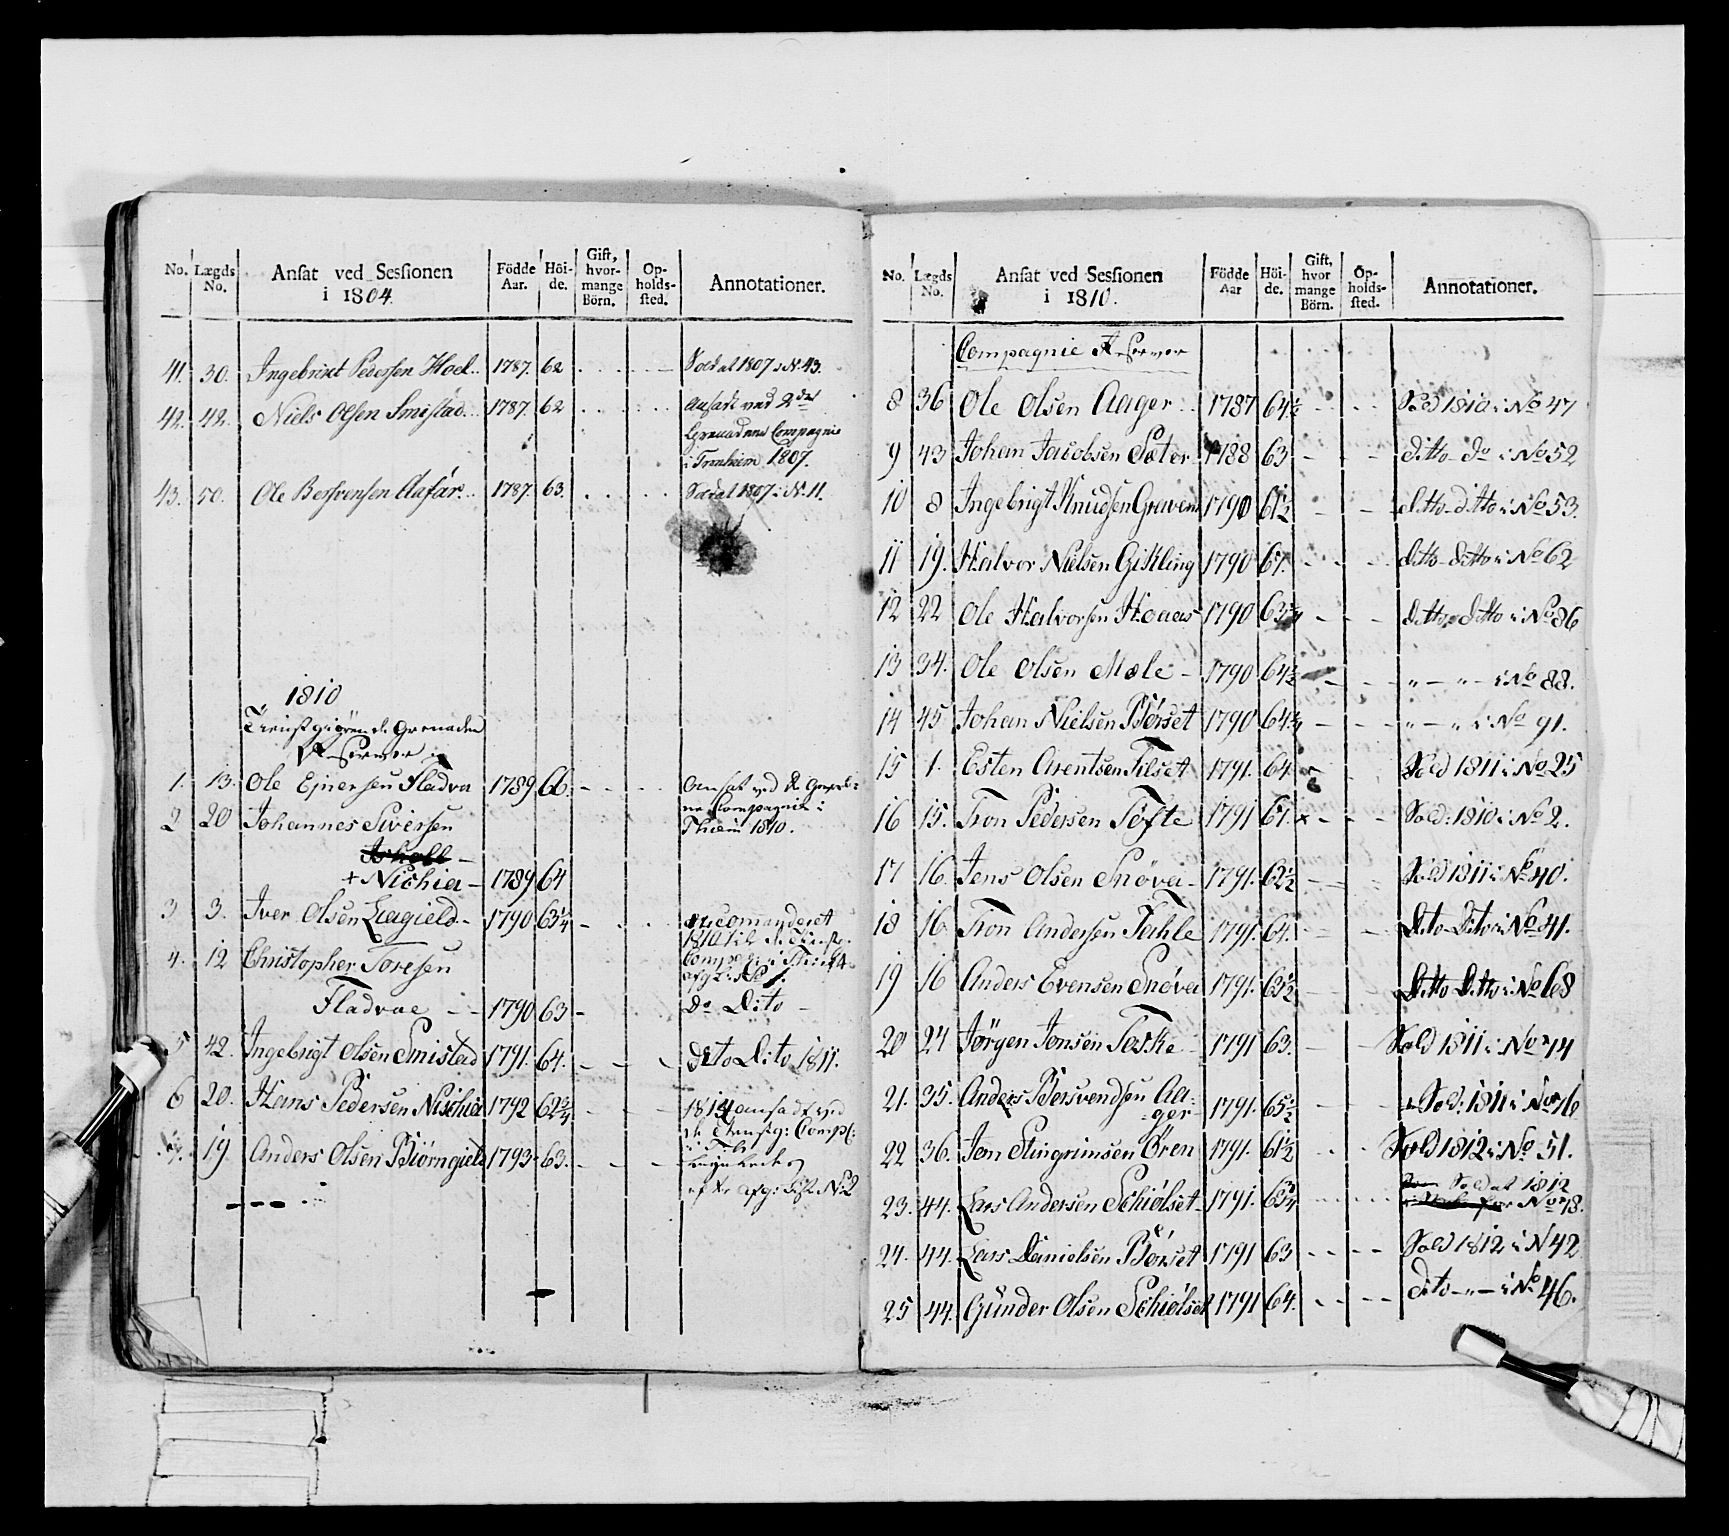 No. Lægds No. Ansat ved Sessionen i 1804. Födde Aar. Höi-de. Gift, hvor-mange Börn. Op-holds-sted. Annotationer.
41. 30. Ingebrict Pedersen Hoel.. 1787. 62 Soldat 1807 i N. 43.
42. 42. Niels Olsen Smistad. 1787. 62 Ansadt ved 2den
Grenadeer Compagnie
i Tronhiem 1807.
43. 50. Ole Bersvensen Aafar.. 1787. 63. Soldat 1807 i N. 11.
1810
Tienstgiörende Grenadeer
Reserver
1. 13. Ole Ejnersen Fladva 1789 66. Ansat ved 2 Grenadi:
re Compagnie i
Thiem 1810.
2 20 Johannes Siversen
+ Nischia - 1789 64
3 3. Iver Olsen Lægield - 1790 63 1/4 - udcomanderet
1810 til
4. 12 Christopher Toresen
Fladvae - - 1790 63 - Do Dito -
5 42. Ingebrigt Olsen Smistad 1791. 64. - - - Dito Dito 1811.
6 20. Hans Pedersen Nischia 1792 62 3/4 - - - 1814 ansadt ved
de Tienstg: Comp:
7. 19 Anders Olsen Biörngield 1793. 63. - - -
afg: List N: 2
No. Lægds No. Ansat ved Sessionen i 1810. Födde Aar Höi-de. Gift, hvor mange Börn. Op-holds-sted. Annotationer.
Compagnie Reserver
8 36 Ole Olsen Aager .. 1787 64 1/2 - - - Sold 1810 i No 47
9 43 Johan Jacobsen Sæter 1788 63 - - - ditto do i No 52
10 8 Ingebrigt Knudsen Graven 1790 61 1/2 - - ditto ditto i No 53.
11 19. Halvor Nielsen Gikling 1790 67. - - - ditto ditto i No 62
12 22 Ole Halvorsen Hoaas 1790 63 3/4 - - - ditto ditto i No 86
13 34. Ole Olsen Mæle - 1790 64 1/2 - - - " - " - i No 88.
14 45 Johan Nielsen Börset 1790 64 3/4 - - - " - " i No 91.
15 1. Esten Arentsen Tilset 1791. 64 Sold 1811 i No 25
16 15. Tron Pedersen Tofte 1791 61. x - - - Sold: 1810 i No 2.
17 16. Jens Olsen Snøva - 1791. 62 1/2 - - - Sold 1811 i No 40.
18 16. Tron Andersen Fahle 1791. 64. - - - Dito Dito i No 41.
19 16 Anders Evensen Snøva 1791. 63 1/2 - - - Ditto Ditto i No 68
20 24 Jørgen Jonsen Toske 1791 63. - - Sold 1811 i No 44
21. 35. Anders Bersvendsen Aa-
ger - 1791. 65 1/2 - - Sold: 1811 i No 76
22 36. Jon Stingrimsen Ören 1791. 61 1/2 - - - Sold 1812 i No 51.
23. 44. Lars Andersen Schiølset - 1791. 63 3/4 - - - Soldat 1812
No 48.
24. 44. Lars Danielsen Börset 1791 63 - - - - Sold 1812 i N 42
25 44. Gunder Olsen Schiølset 1791 64. - - - - dito - " - i No 46.